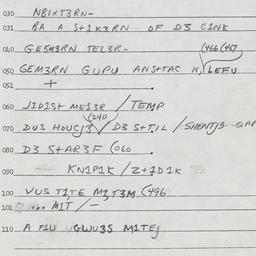 030 N8IXT3RN-
031 BA A S+1K3RN OF D3 C1NK
040 GESM3RN TEL3R- (466 (467
050 GEM3RN GUPU ANS+TAC N, LEFU
051 +
060 J1D1S+ MES3R / TEMP
(240
070 DUS HOUCJ3 / D3 S+T,1L / SHENTJ3 GAP
080 D3 S+AR3F (060
090 KN1P1K / Z+1D1K
100 VUS T1TE M1T3M (496
101 ... M1T / -
110 A F1U GWU3S M1TEJ